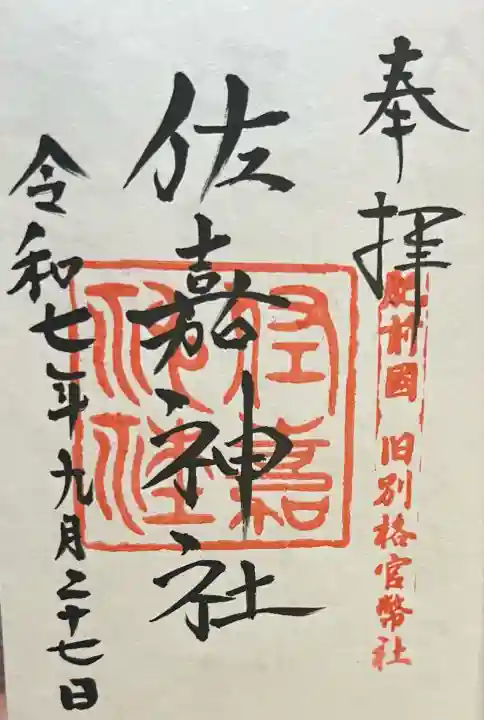 奉拝
肥前國 旧別格官幣社
佐嘉神社
佐嘉神社
令和七年九月二十七日